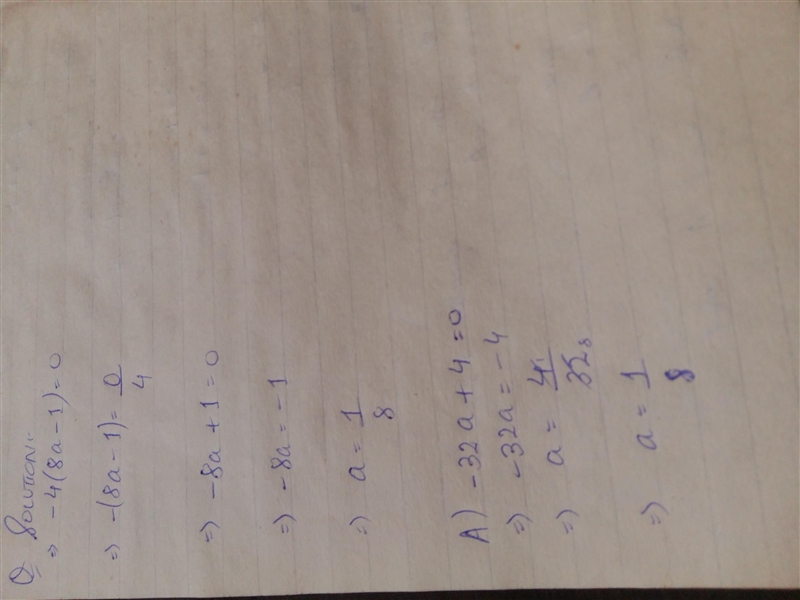 Q Solution:-
=> -4(8a-1)=0
=> -(8a-1)= 0/4
=> -8a+1=0
=> -8a=-1
=> a= 1/8
A) -32a+4=0
=> -32a=-4
=> a= 4 1/32 8
=> a= 1/8